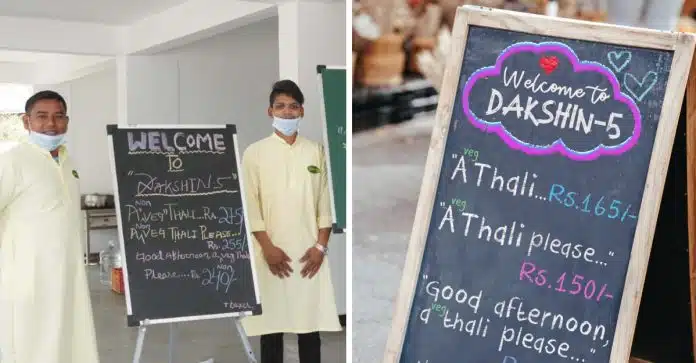 WELCOME
TO
"DAKSHIN5"
Non
"A veg THALI...Rs. 275
Non
A veg THALI PLEASE...
Rs. 255/-
Good afternoon, a veg Thali
Non
Please.... Rs 240/-
Welcome to
DAKSHIN-5
veg
"A Thali... Rs.165/-
veg
"A Thali please..."
Rs.150/-
"Good afternoon,
veg
a thali please..."